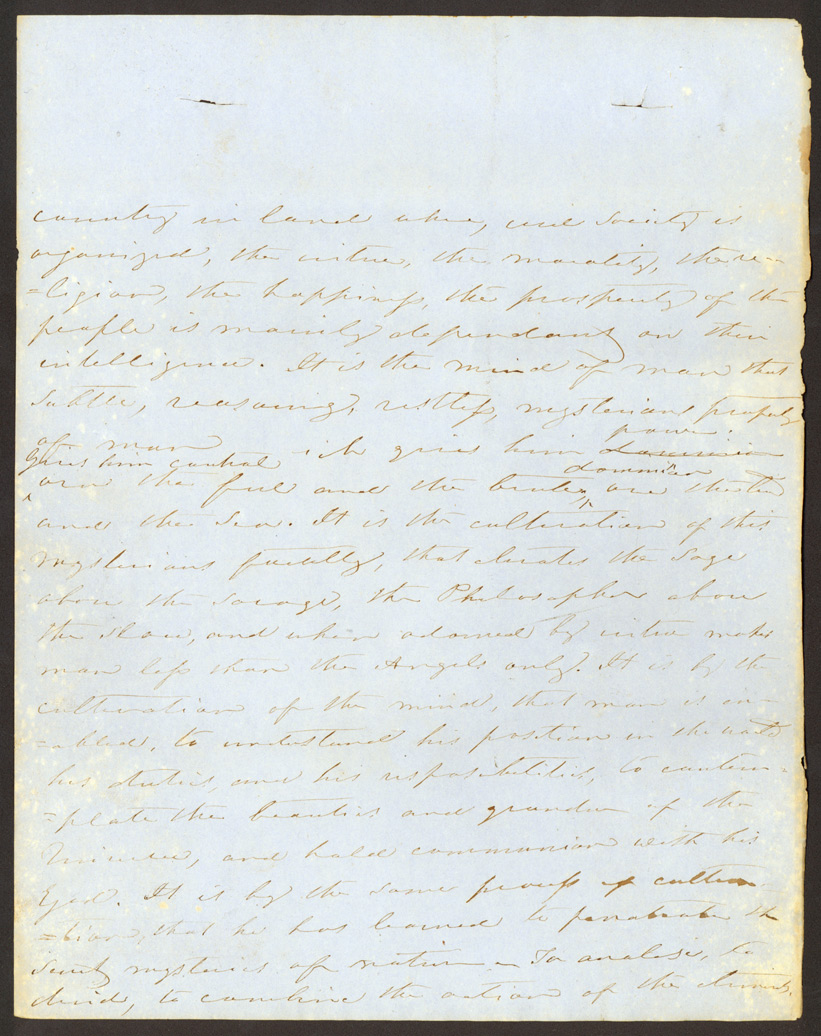 country in land where, civil Society is
organized, the virtue, the morality, the re-
=ligion, the happiness, the prosperity of the
people is mainly dependant on their
intelligence. It is the mind of man that
subtle, reasoning, restless, mysterious property
of man
power.
ich gives him dominion
gives him control
dominion
over the fuel and the brutes, over the land
and the Sea. It is the cultivation of this
mysterious faculty, that elevates the Sage
above the Savage, the Philosopher above
the Slave, and when adorned by virtue makes
man less than the Angels only. It is by the
cultivation of the mind, that man is en-
=abled, to understand his position in the world
his duties, and his responsibilities, to contem-
=plate the beauties and grandeur of the
Universe, and hold communion with his
God. It is by the same process of cultiva-
=tion, that he has learned to penetrate the
secret mysteries of nature - To analise, to
divide, to combine the action of the elements.